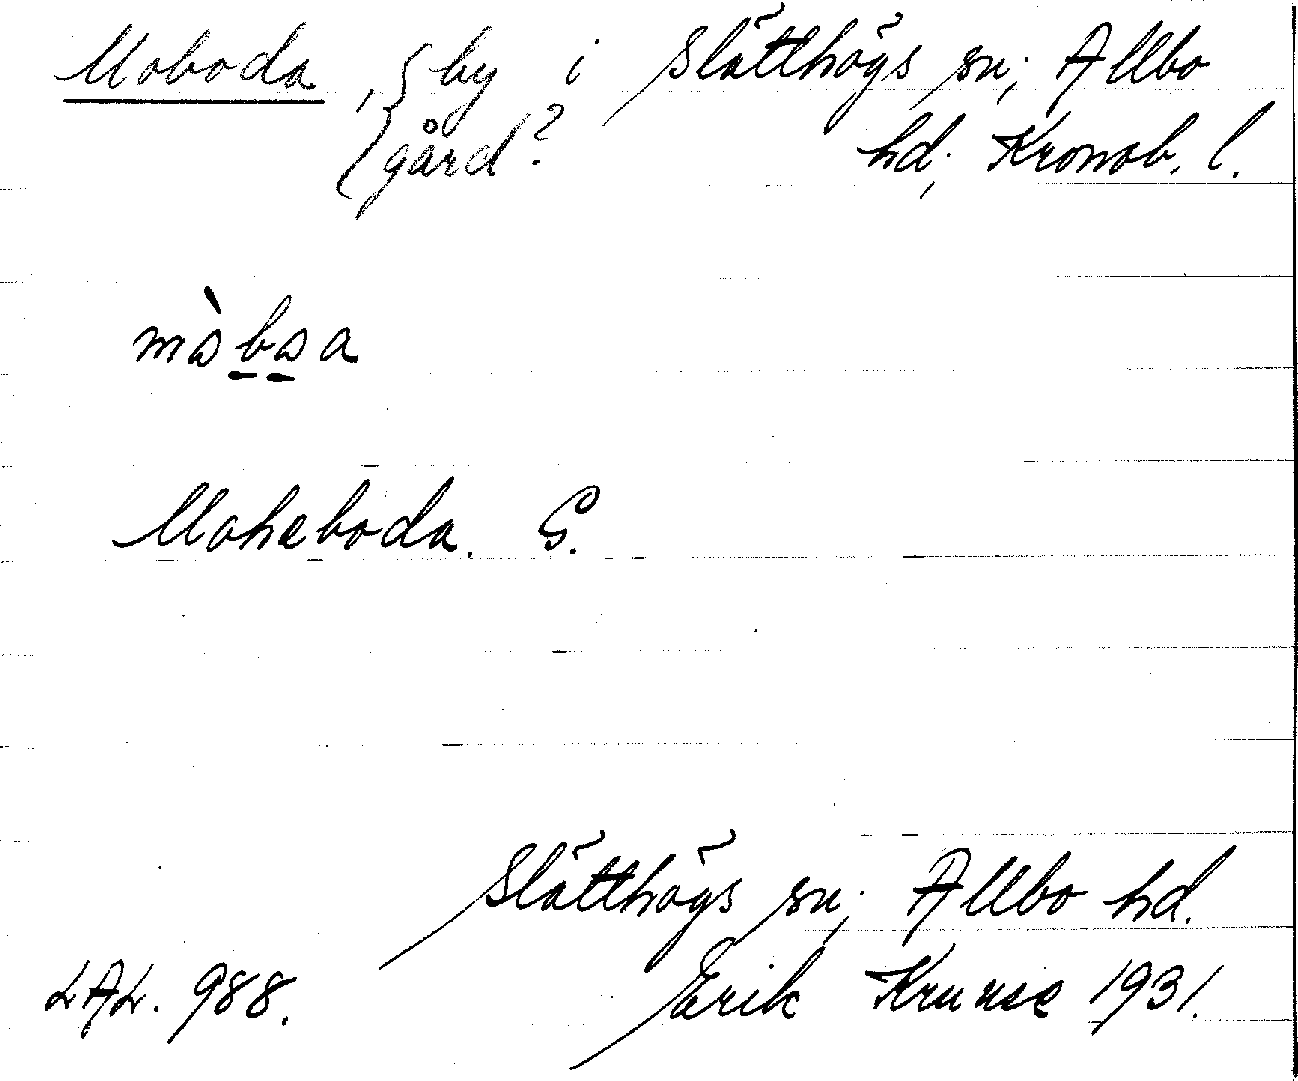 Moboda, { by i Slätthögs sn; Allbo
{ gård? hd; Kronob. l.
Moheboda. G.
Slätthögs sn; Allbo hd.
LAL. 988. Erik Kruuse 1931.